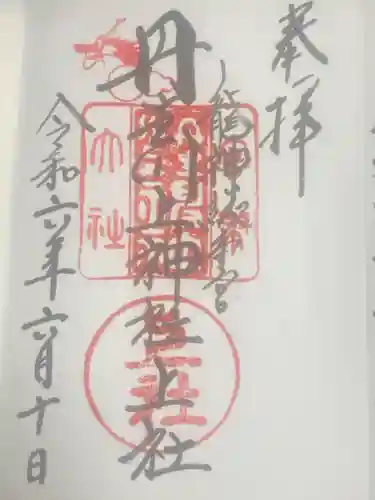 奉拝
龍神総本宮
丹生川上神社上社
令和六年六月十日
大社